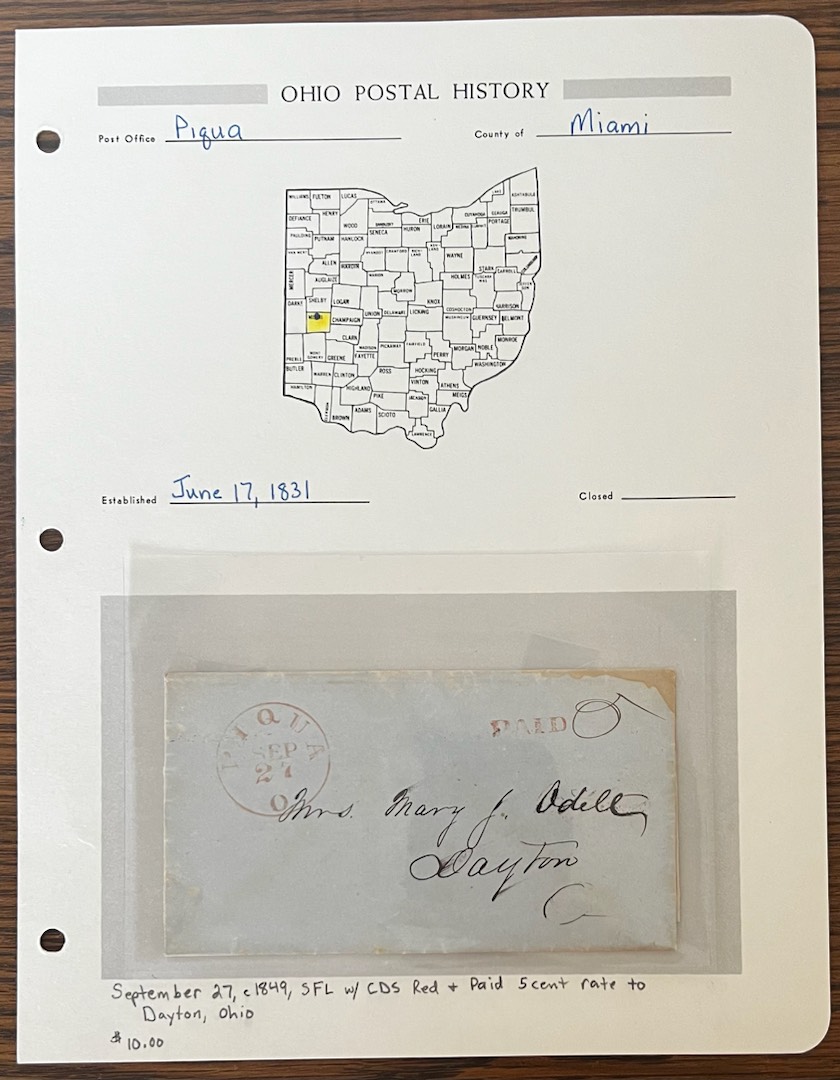 OHIO POSTAL HISTORY
Post Office Piqua County of Miami
WILLIAMS FULTON LUCAS OTTAWA LAKE ASHTABULA
DEFIANCE HENRY WOOD SANDUSKY ERIE LORAIN CUYAHOGA GEAUGA TRUMBUL
PAULDING PUTNAM HANCOCK SENECA HURON MEDINA SUMMIT PORTAGE MAHONING
VAN WERT ALLEN HARDIN WYANDOT CRAWFORD RICHLAND ASHLAND WAYNE STARK CARROLL COLUMBIANA
MERCER AUGLAIZE MARION MORROW HOLMES TUSCARAWAS JEFFERSON
DARKE SHELBY LOGAN UNION DELAWARE KNOX LICKING COSHOCTON HARRISON
CHAMPAIGN MUSKINGUM GUERNSEY BELMONT
CLARK MADISON PICKAWAY FAIRFIELD PERRY MORGAN NOBLE MONROE
PREBLE MONTGOMERY GREENE FAYETTE WASHINGTON
BUTLER WARREN CLINTON ROSS HOCKING VINTON ATHENS
HAMILTON HIGHLAND PIKE JACKSON MEIGS
BROWN ADAMS SCIOTO GALLIA
LAWRENCE
Established June 17, 1831 Closed
PIQUA
SEP
27
O
PAID 5
Mrs. Mary J. Odell
Dayton
O
September 27, c1849, SFL w/ CDS Red + Paid 5 cent rate to
Dayton, Ohio
$10.00